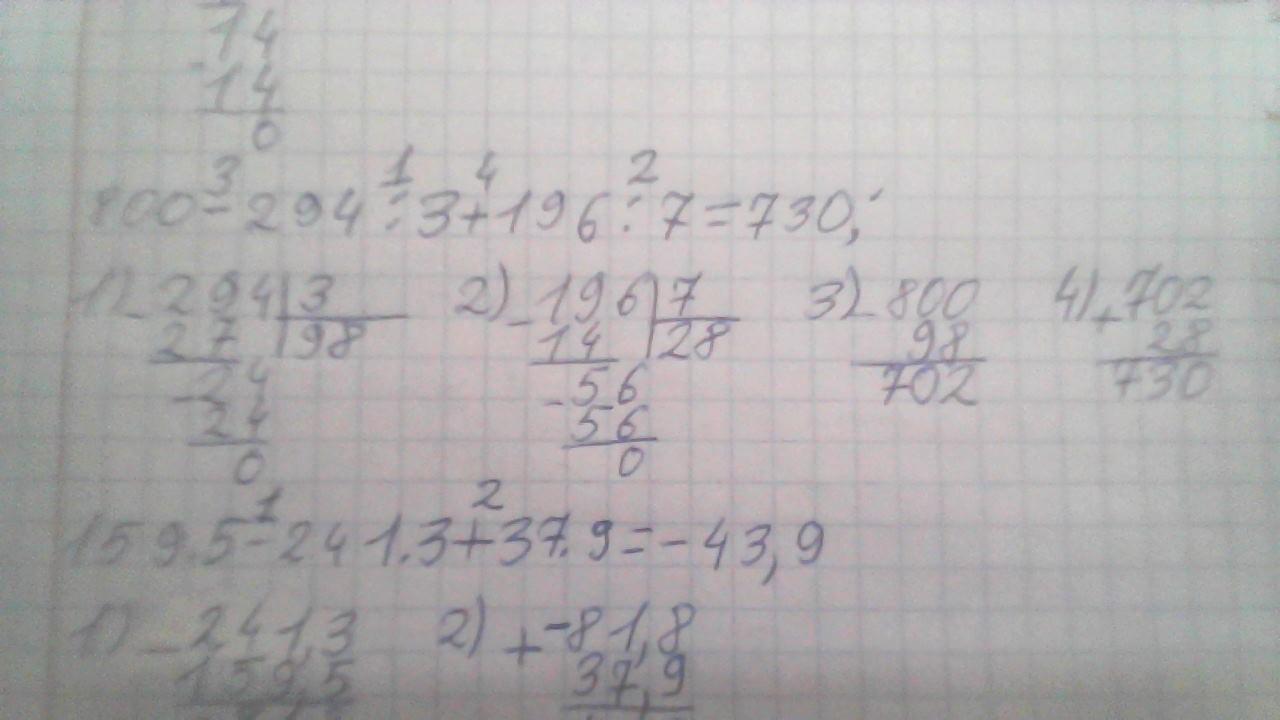 14
-14
0
3 1 4 2
800-294:3+196:7=730;
1) -294|3 2) -196|7 3) -800 4) +702
27 |98 14 |28 98 28
-24 -56 702 730
24 56
0 0
1 2
159.5-241.3+37.9=-43,9
1) -241,3 2) +-81,8
159,5 37,9